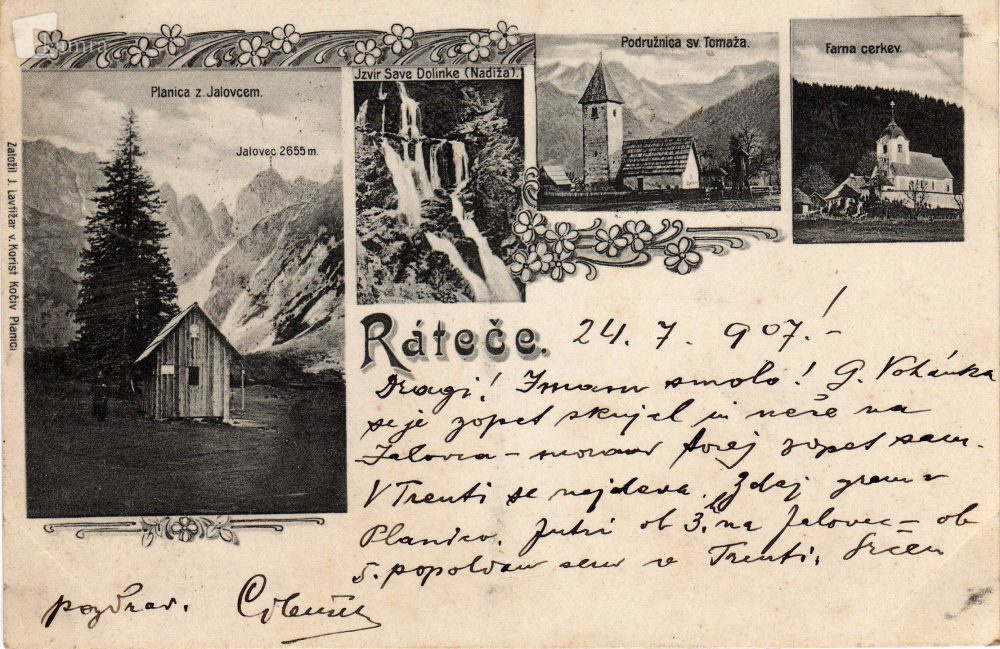 Konta
Planica z Jalovcem.
Jalovec 2655 m.
Jzvir Save Dolinke (Nadiža).
Podružnica sv. Tomaža.
Farna cerkev.
Založil J. Lavtižar v. Korist Kočiv Planici.
Ráteče.
24. 7. 907!-
Dragi! Imam smolo! G. Vohánka
se je zopet skujal in neče na
Jalovca – moram torej zopet sam.
V Trenti se najdeva. Zdaj grem v
Planico. Jutri ob 3h na Jalovec – ob
5. popoldan sem v Trenti. Srčen
pozdrav.